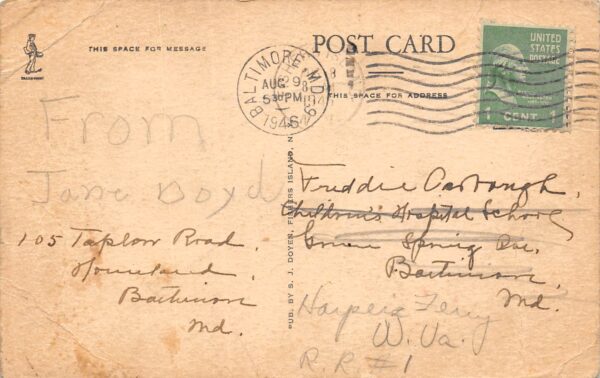 THIS SPACE FOR MESSAGE
POST CARD
THIS SPACE FOR ADDRESS
BALTIMORE, MD.
AUG 29
5 PM
1946
UNITED
STATES
POSTAGE
1 CENT 1
From
Jane Boyd
105 Taplow Road,
Homeland,
Baltimore
Md.
PUB. BY S. J. DOYEN, FISHERS ISLAND, N.
Freddie Carbaugh,
Children's Hospital School
Green Spring Ave.
Baltimore,
Md.
Harpers Ferry
W. Va.
R. R. #1